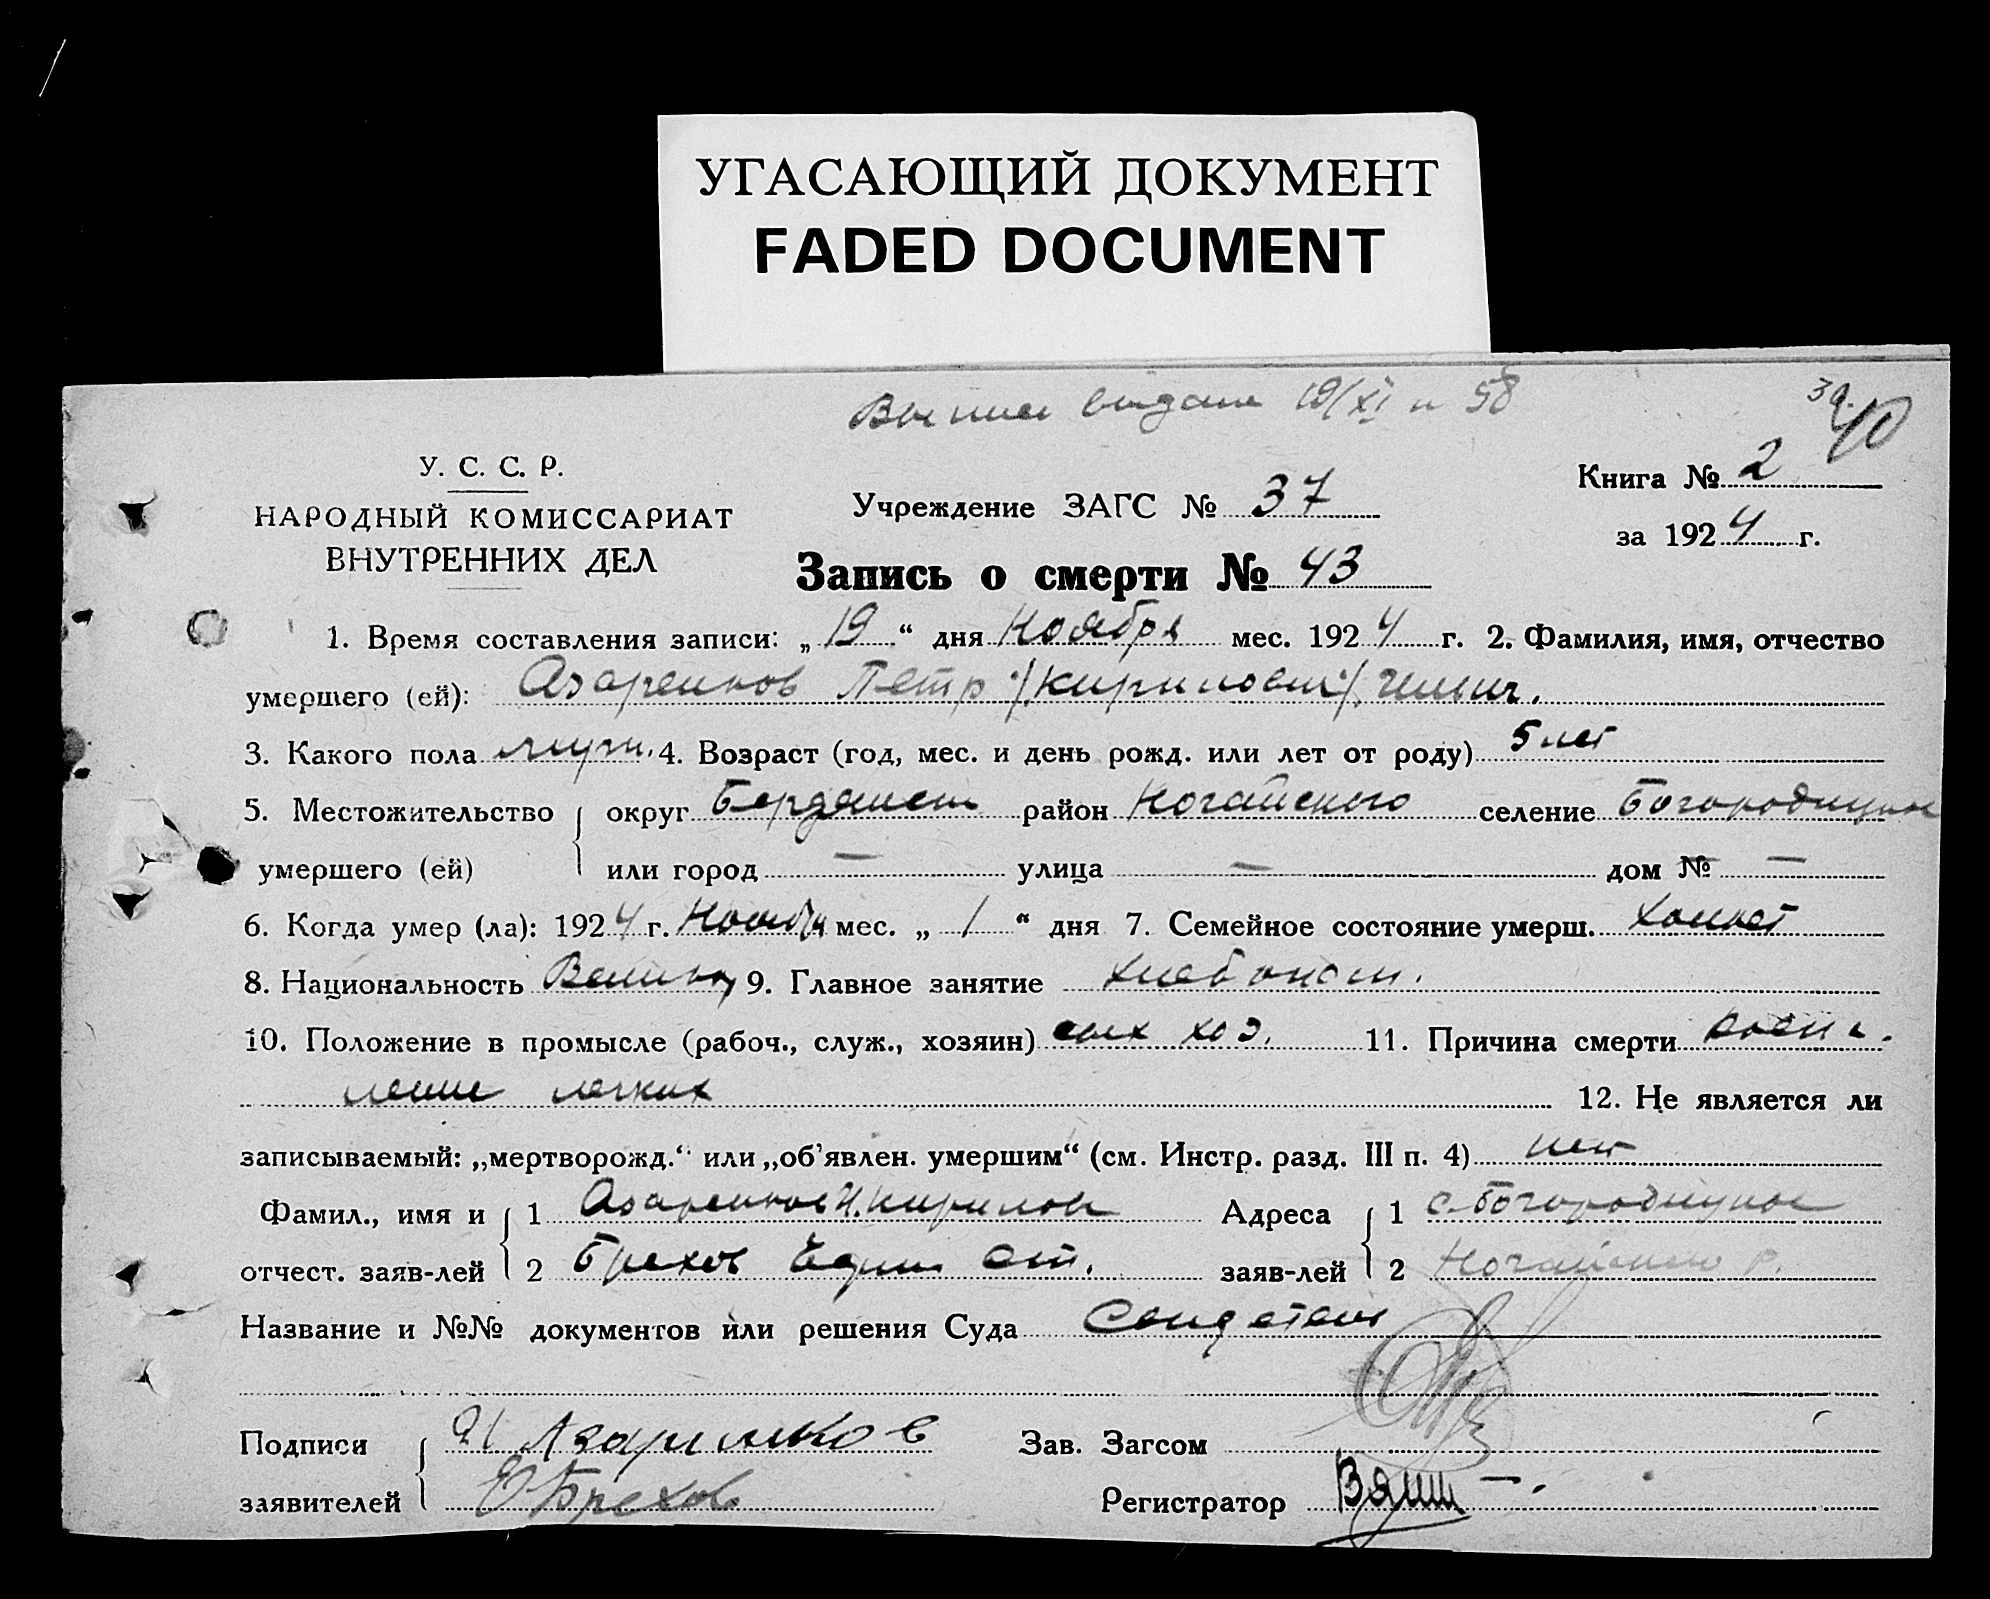 УГАСАЮЩИЙ ДОКУМЕНТ
FADED DOCUMENT
выдана 19/XI 58
39. 40
У. С. С. Р.
НАРОДНЫЙ КОМИССАРИАТ
ВНУТРЕННИХ ДЕЛ
Учреждение ЗАГС № 37
Книга № 2
за 1924 г.
Запись о смерти № 43
1. Время составления записи: „19“ дня Ноября мес. 1924 г. 2. Фамилия, имя, отчество
умершего (ей): Азаренков Петр
3. Какого пола мужч. 4. Возраст (год, мес. и день рожд. или лет от роду) 5 лет
5. Местожительство округ Бердянск район Ногайского селение Богородицкое
умершего (ей) или город — улица — дом № —
6. Когда умер (ла): 1924 г. Ноября мес. „1“ дня 7. Семейное состояние умерш. холост
8. Национальность 9. Главное занятие хлебопаш.
10. Положение в промысле (рабоч., служ., хозяин) сельх хоз. 11. Причина смерти воспа-
ление легких 12. Не является ли
записываемый: „мертворожд.“ или „об'явлен. умершим“ (см. Инстр. разд. III п. 4) нет
Фамил., имя и 1 Азаренков И. Кирилов Адреса 1 с. Богородицкое
отчест. заяв-лей 2 Брехов заяв-лей 2 Ногайского р.
Название и №№ документов или решения Суда
Подписи Азаринков Зав. Загсом
заявителей Брехов Регистратор